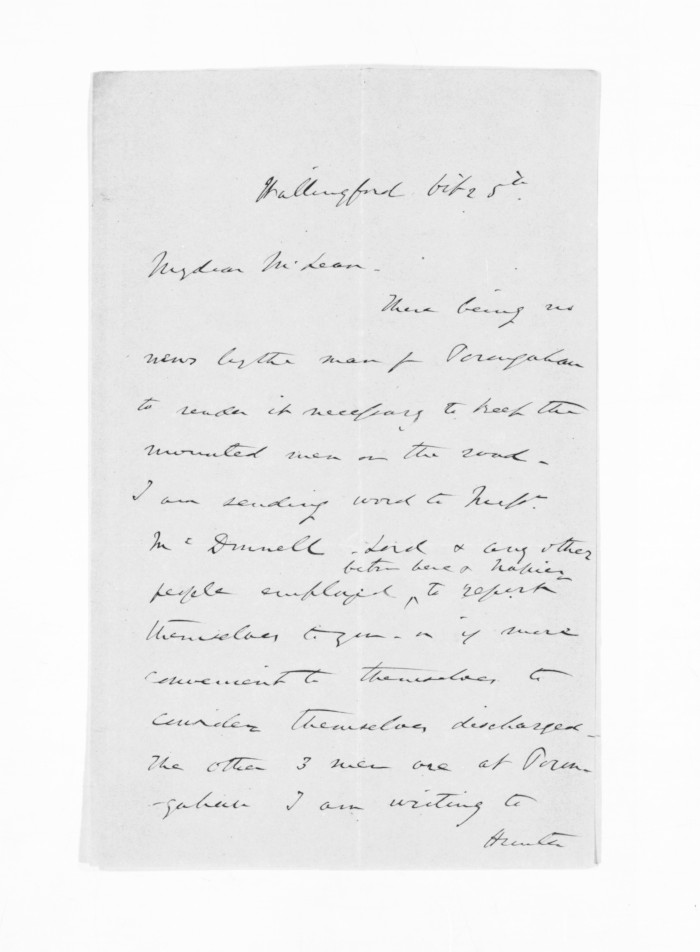 Wallingford Oct 25th
My dear McLean.
There being no
news by the man fr Porangahau
to render it necessary to keep the
mounted men on the road -
I am sending word to Messrs
McDonnell - Lord & any other
betwn here & Napier
people employed, to report
themselves to you - or if more
convenient to themselves to
consider themselves discharged -
The other 3 men are at Poran-
-gahau I am writing to
Hunter